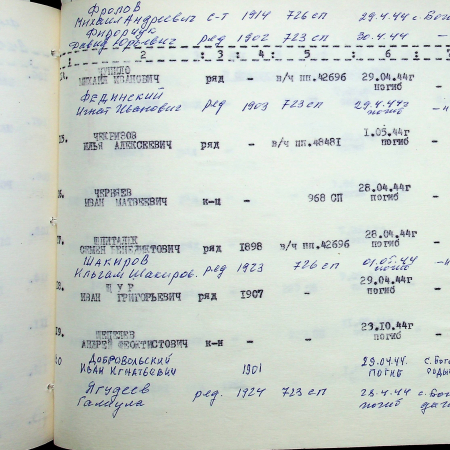 Фролов
Михаил Андреевич с-т 1914 726 сп 29.4.44 с. Бог
Давид Юрьевич ряд 1902 723 сп 30.4.44 -
: 2 : 3 : 4 : 5 : 6 : 7
МИХАИЛ ИВАНОВИЧ ряд - в/ч пп.42696 29.04.44г
погиб
ФЕДИНСКИЙ
Игнат Иванович ряд 1903 723 сп 29.4.44г
погиб
ЧЕКРИЗОВ 1.05.44г
ИЛЬЯ АЛЕКСЕЕВИЧ ряд - в/ч пп.48481 погиб
ЧЕРНЯЕВ 28.04.44г
ИВАН МАТВЕЕВИЧ к-ц - 968 СП погиб
28.04.44г
СЕМЕН ряд 1898 в/ч пп.42696 погиб
ШАКИРОВ
Ильгам Шакиров. ряд 1923 726 сп 01.05.44
погиб
ЩУР 29.04.44г
ИВАН ГРИГОРЬЕВИЧ ряд 1907 - погиб
23.10.44г
АНДРЕЙ ФЕОКТИСТОВИЧ к-н - - погиб
ДОБРОВОЛЬСКИЙ 29.04.44. с. Бог
ИВАН ИГНАТЬЕВИЧ 1901 ПОГИБ
Ягудеев ряд. 1924 723 сп 28.4.44 с. Бог
Гамиула погиб